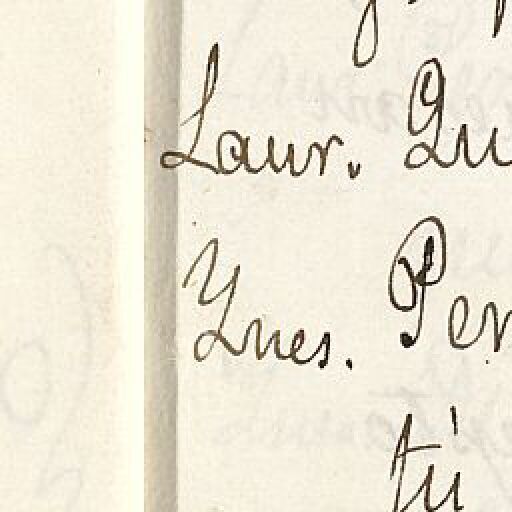 Laur. Qu
Ynes. Per
tú